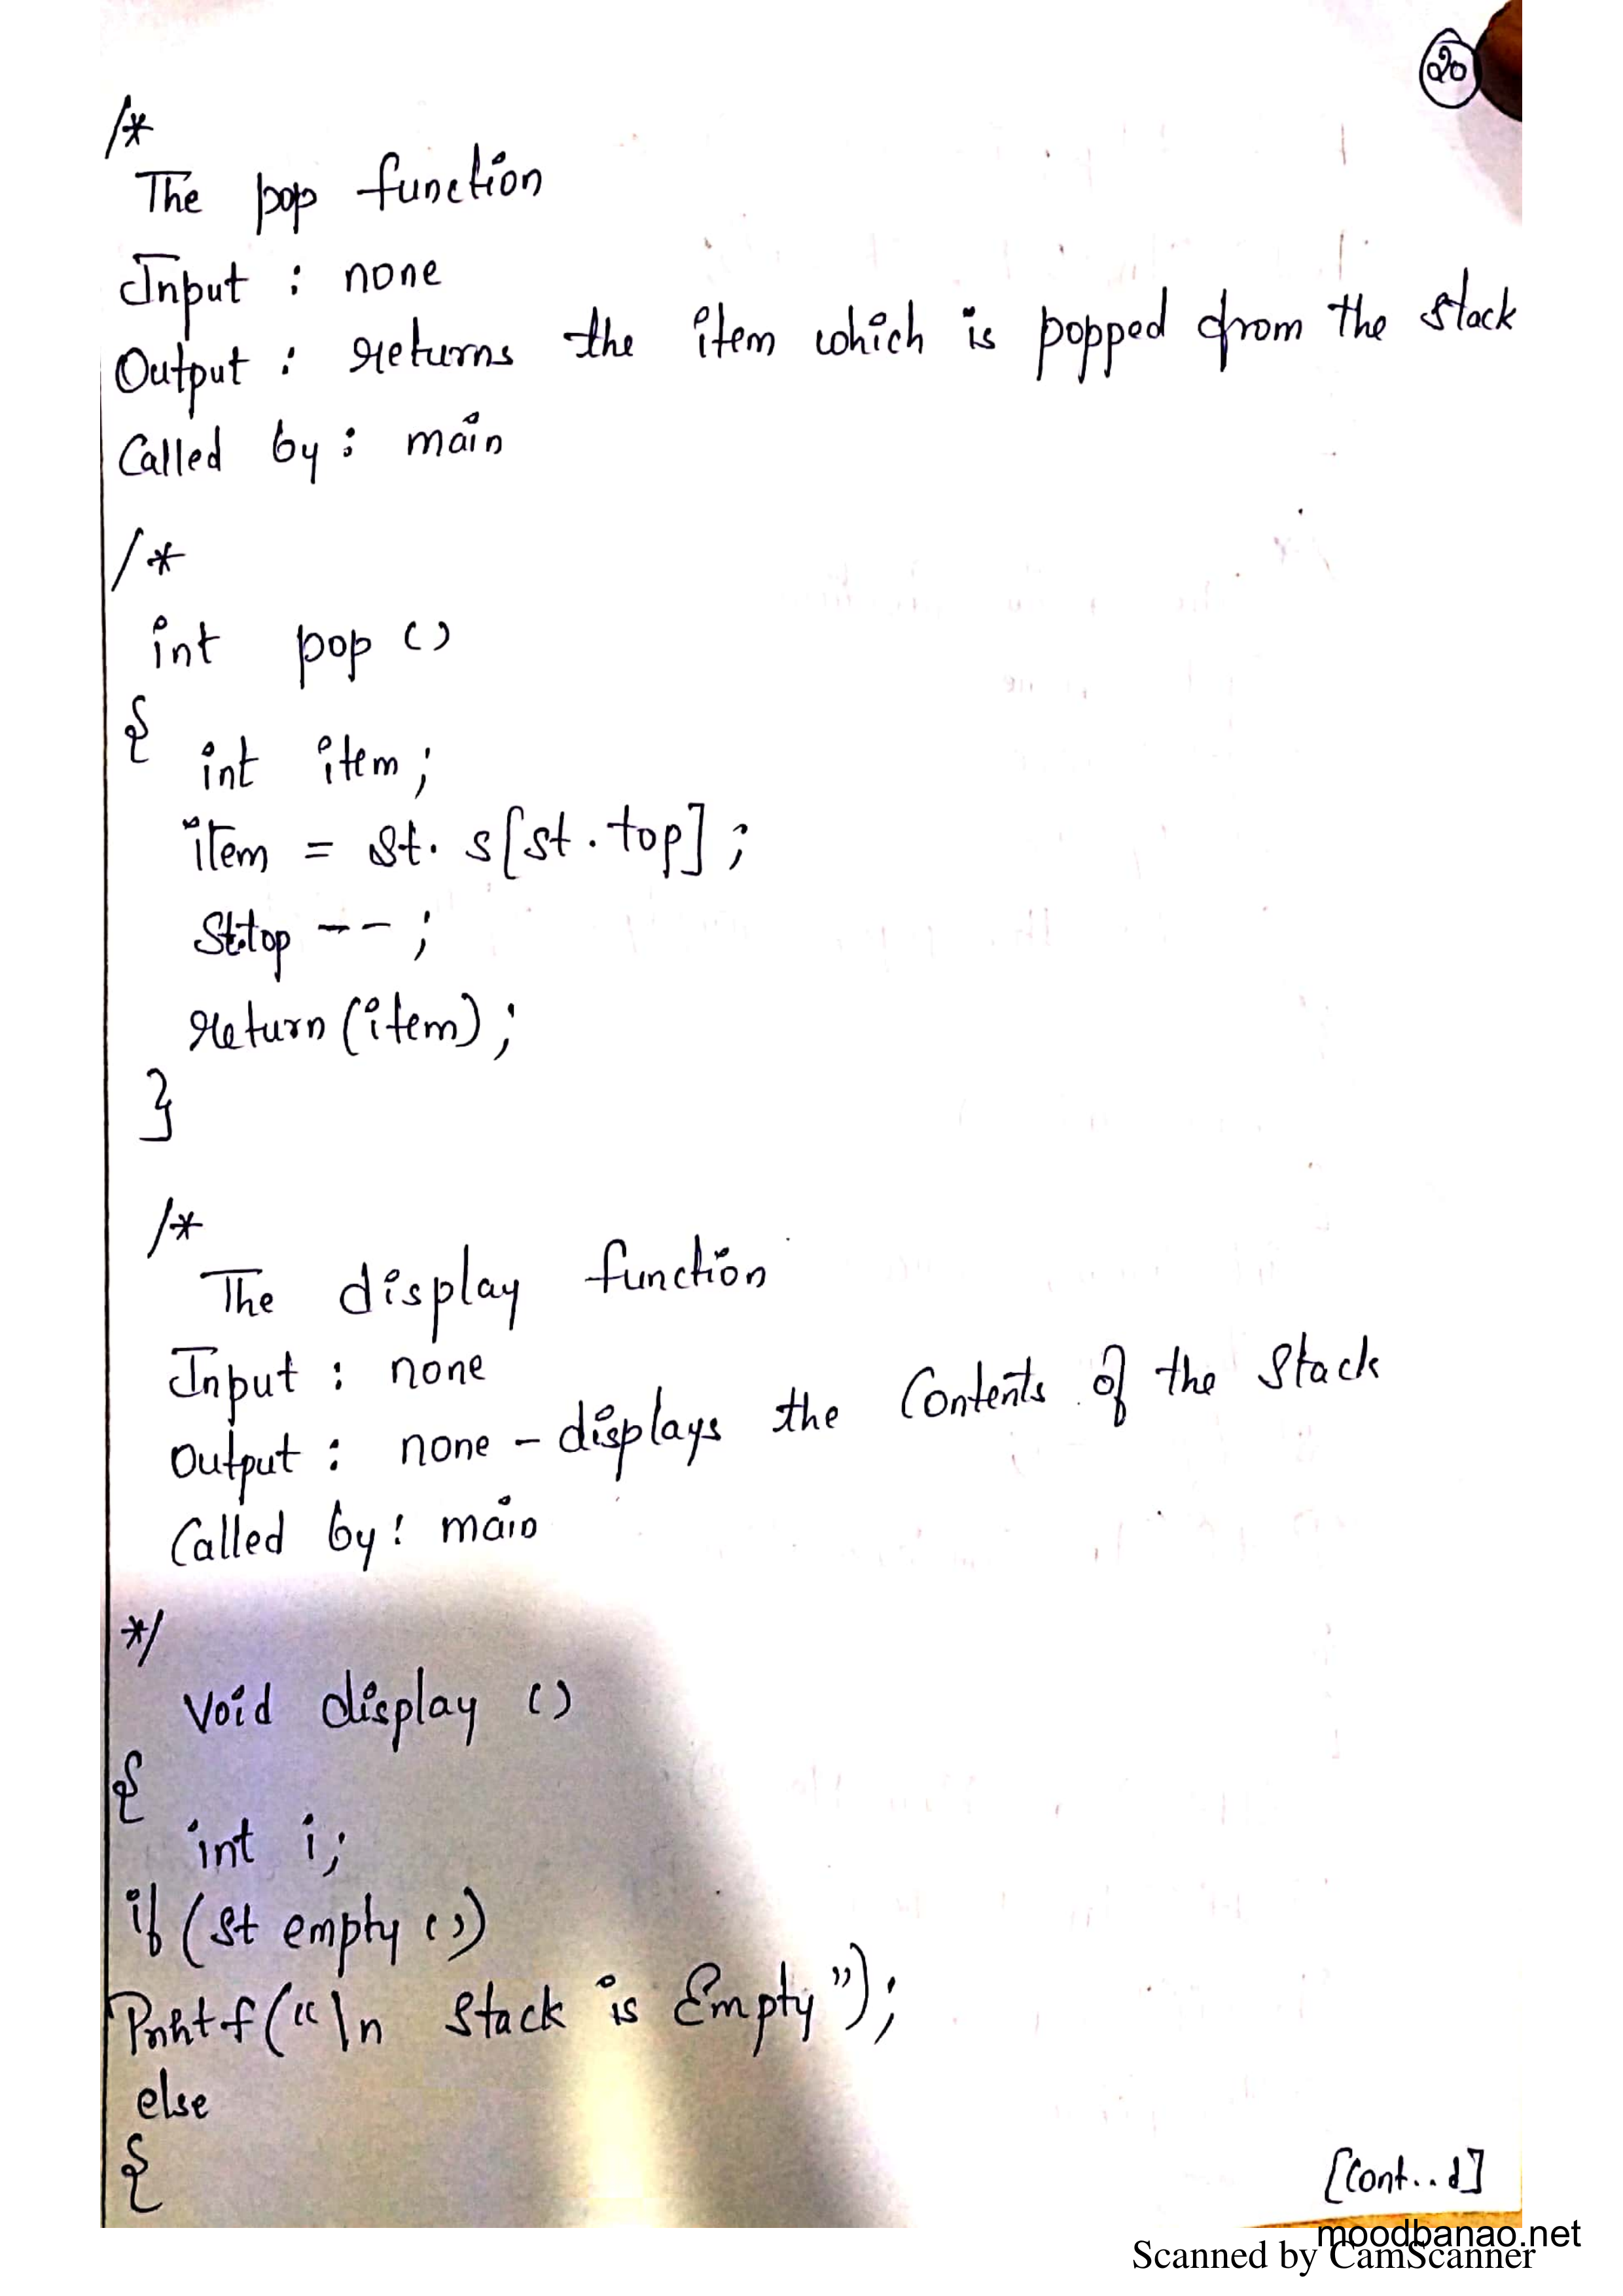 20
/*
The pop function
Input : none
Output : returns the item which is popped from the stack
Called by : main
/*
int pop ()
{
int item ;
item = st. s[st.top] ;
St.top -- ;
return (item) ;
}
/*
The display function
Input : none
Output : none - displays the Contents of the Stack
Called by : main
*/
Void display ()
{
int i;
if (st empty ())
Printf (“\n Stack is Empty”);
else
{
[Cont..d]
moodbanao.net
Scanned by CamScanner